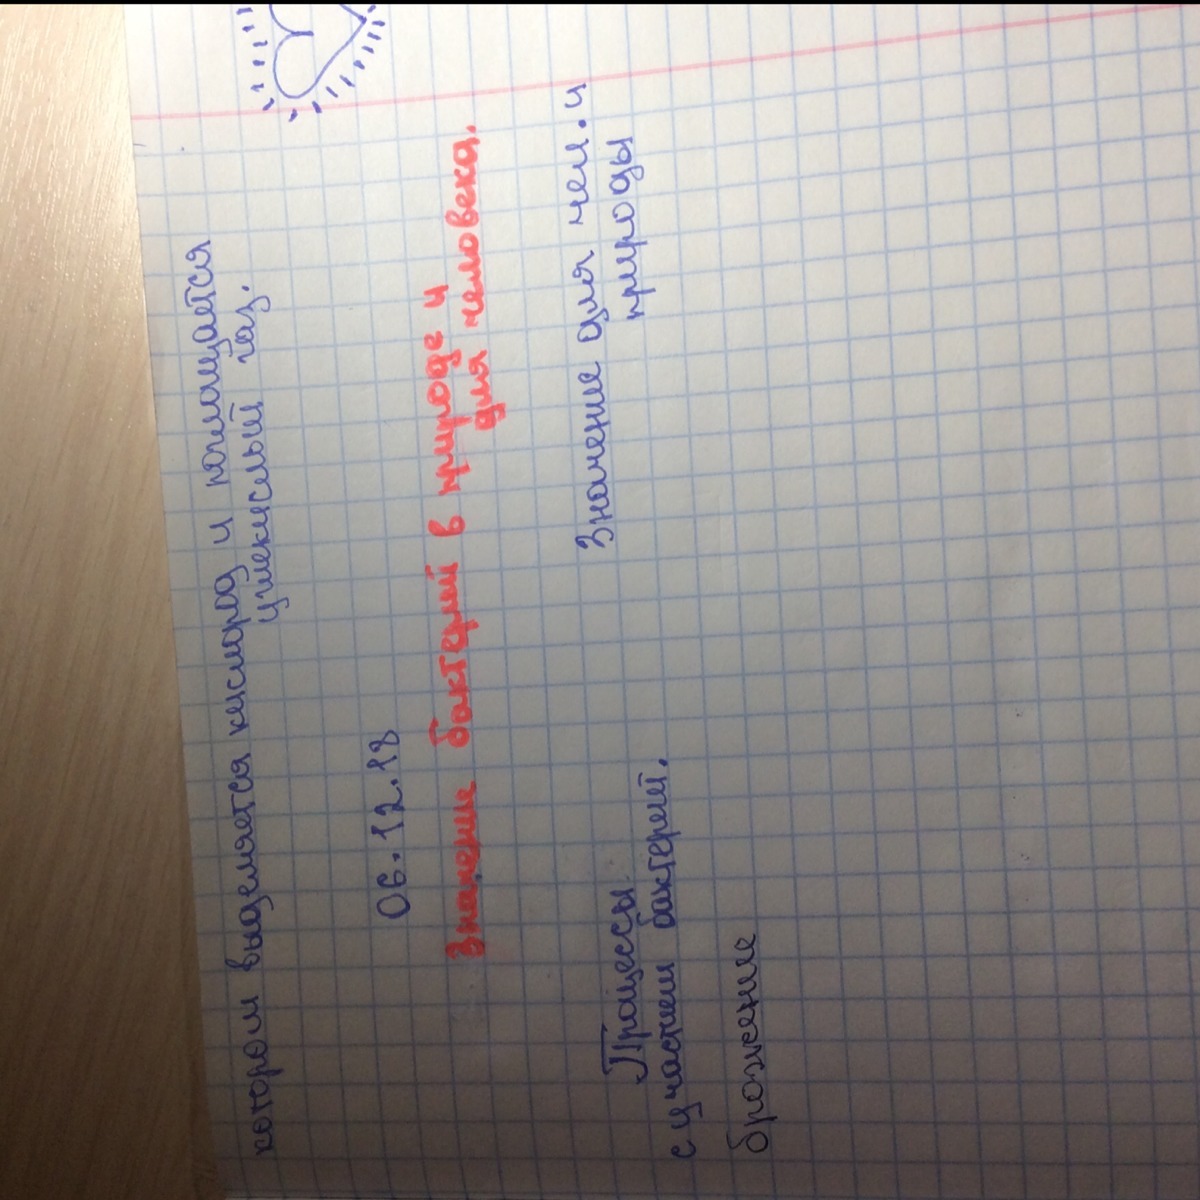 котором выделяется кислород и поглощается
углекислый газ.
06.12.18
Значение бактерий в природе и
для человека.
Процессы
с участием бактерий.
Значение для чел. и
природы
брожение